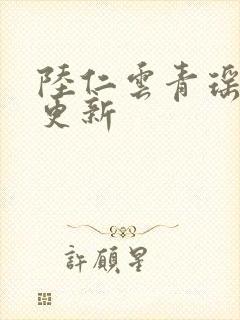 陸仁雲青瑶
更新
許願星